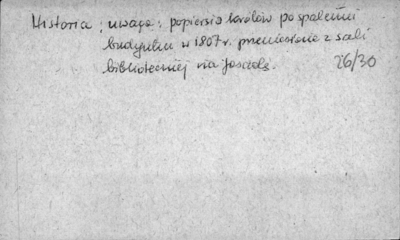 Historia : uwaga : popiersia królów po spaleniu
budynku w 1807 r. przeniesione z sali
bibliotecznej na fasadę.
26/30